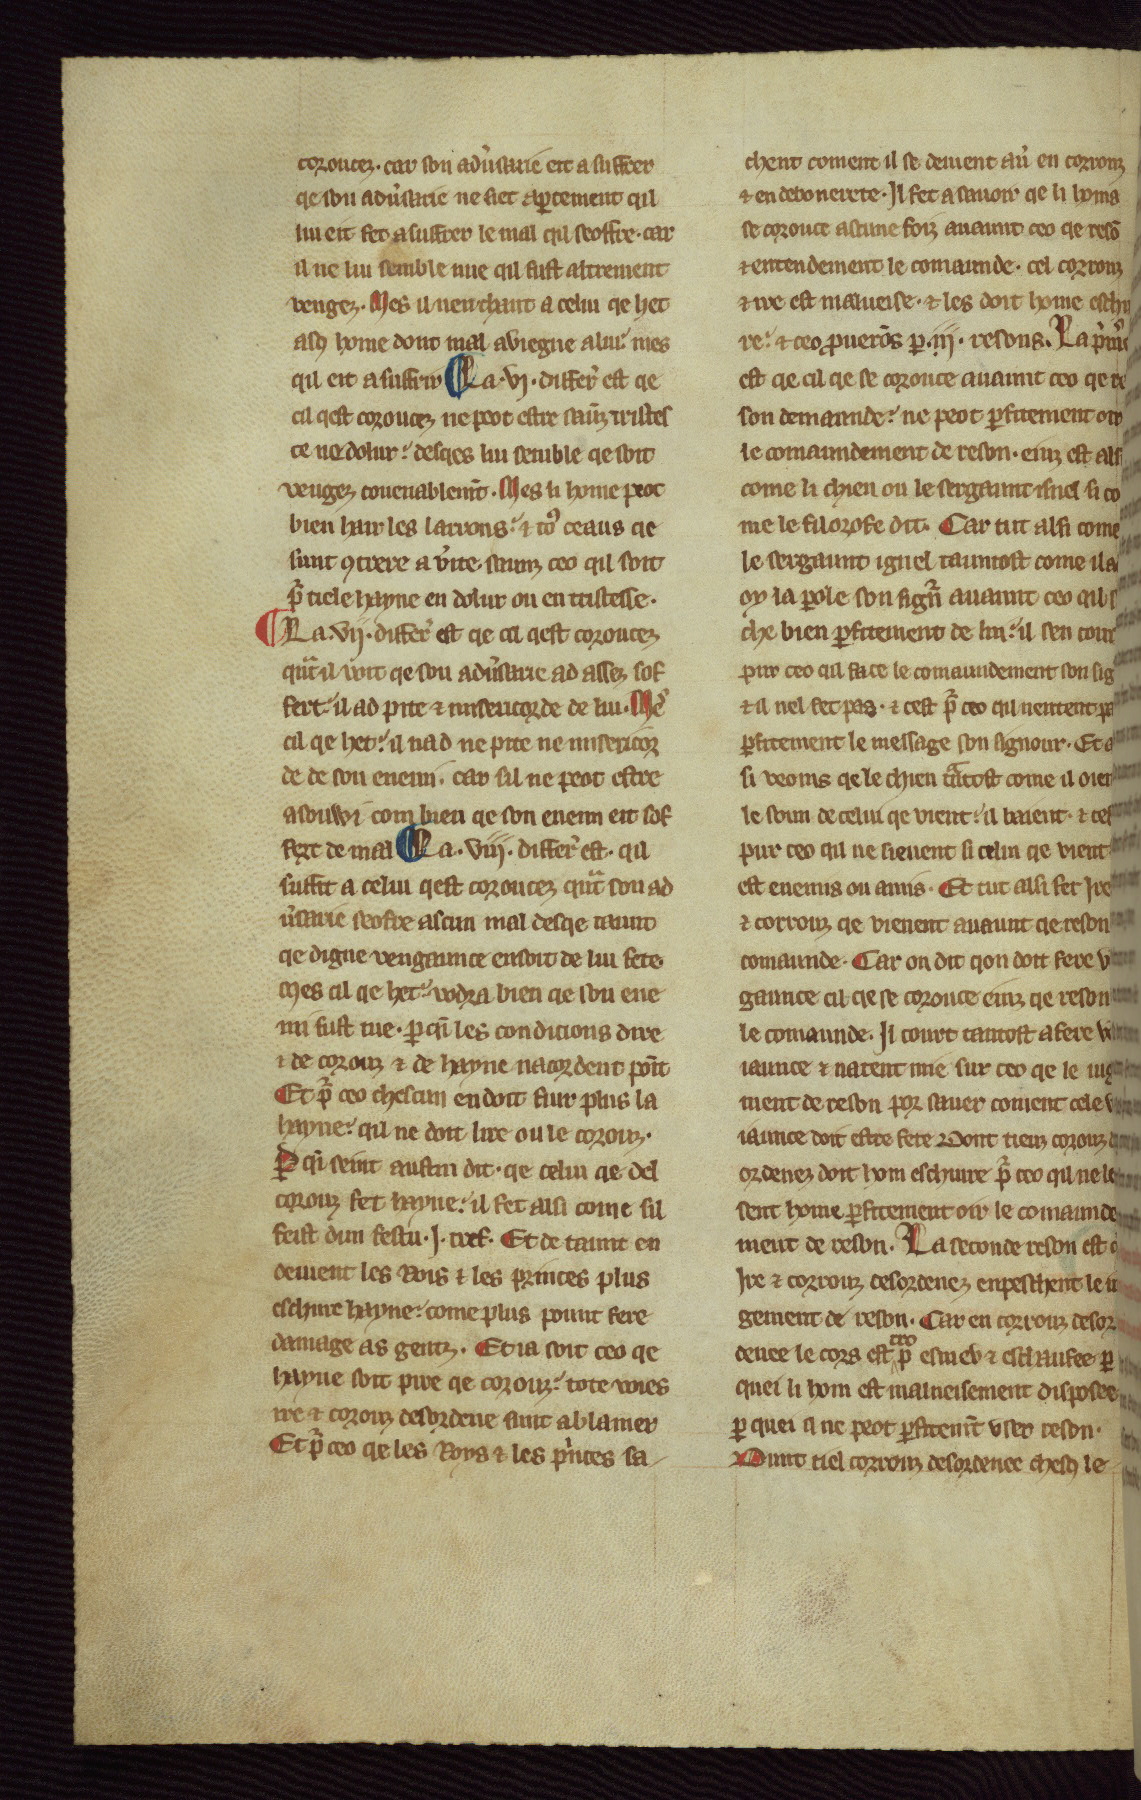 coroucez. car son adu̾sarie eit a suffrer
qe son adu̾sarie ne siet ap̱tement qil
lui eit fet a suffrer le mal qil seoffre. car
il ne lui semble mie qil fust altrement
vengez. Mes il nen chaut a celui qe het
asq̾ home dont mal aviegne a lui: mes
qil eit a suffrir ¶ La .vj. differ̾ est qe
cil qest coroucez ne peot estre saunz tristes
ce ne dolur: desqes lui semble qe soit
vengez couenablem̄t. Mes li home peot
bien hair les larrons: ⁊ to᷒ ceaus qe
sunt ꝯtrere a v̾ite saunz ceo qil soit
pᷓ tiele hayne en dolur ou en tristesse.
¶ La .vij. differ̾ est qe cil qest coroucez
qᷓt il voit qe son adu̾sarie ad assez sof
fert: il ad pite ⁊ misericorde de lui. Me᷒
cil qe het: il nad ne pite ne misericor
de de son enemi. car sil ne peot estre
asouwi com bien qe son enemi eit sof
fert de mal ¶ La .viij. differ̾ est. qil
suffit a celui qest coroucez qᷓt son ad
u̾sarie seofre ascun mal desqe taunt
qe digne vengaunce ensoit de lui fete.
Mes cil qe het: vodra bien qe son ene
mi fust tue. p̱ qͥ les condicions dire
⁊ de corouz ⁊ de hayne nacordent poīt
Et pᷓ ceo chescun en doit fuir plus la
hayne: qil ne doit lire ou le corouz.
P̱ qͥ seint austin dit. qe celui qe del
corouz fet hayne: il fet alsi come sil
feist dun festu .j. tref. Et de taunt en
deiuent les Rois ⁊ les princes plus
eschiure hayne: come plus pount fere
damage as gentz. Et ia soit ceo qe
hayne soit pire qe corouz: tote voies
ire ⁊ corouz desordene sunt a blamer
Et pᷓ ceo qe les Roys ⁊ les pͥnces sa
chent coment il se deiuent au̾ en corrouz
⁊ en debonerete. Il fet a savoir qe li homs
se corouce ascune foiz auaunt ceo qe resō
⁊ entendement le comaunde. cel corrouz
⁊ ire est malueise. ⁊ les doit home eschu
re: ⁊ ceo ꝓuerōs p̱ .iij. resons. La
est qe cil qe se corouce auaunt ceo qe re
son demaunde: ne peot p̱fitement oir
le comaundement de reson. einz est alsi
come li chien ou le sergaunt isnel si co
me le filozofe dit. Car tut alsi come
le sergaunt ignel tauntost come il a
oy la p̱ole son sign̄ auaunt ceo qil s
che bien p̱fitement de lui: il sen court
pur ceo qil face le comaundement son sig
⁊ il nel fet pas. ⁊ cest pᷓ ceo qil nentent pa
p̱fitement le message son signour. Et a
si veoms qe le chien tᷓtost come il oiet
le soun de celui qe vient: il baient. ⁊ cest
pur ceo qil ne sieuent si celui qe vient
est enemis ou amis. Et tut alsi fet Ire
⁊ corrouz qe vienent auaunt qe reson
comaunde. Car on dit qon doit fere v
gaunce cil qe se corouce einz qe reson
le comaunde. Il court tantost a fere v
iaunce ⁊ natent mie sur ceo qe le iug
ment de reson por sauer coment cele v
iaunce doit estre fete Dont tieuz corouz d
ordenez doit hom eschiure pᷓ ceo qil ne le
sent home p̱fitement oir le comaunde
ment de reson. La seconde reson est q
Ire ⁊ corrouz desordenez enpeschent le iu
gement de reson. Car en corrouz desor
denee le cors est p̱ ceo esmeu ⁊ eschaufee p̱
quei li hom est malueisement disposee
p̱ quei il ne peot p̱fitem̄t vser reson.
Dunt tiel corrouz desordenee chesq̾ le